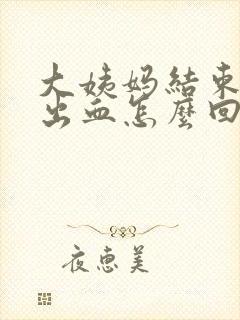 大姨妈結束
出血怎麼回
夜惠美